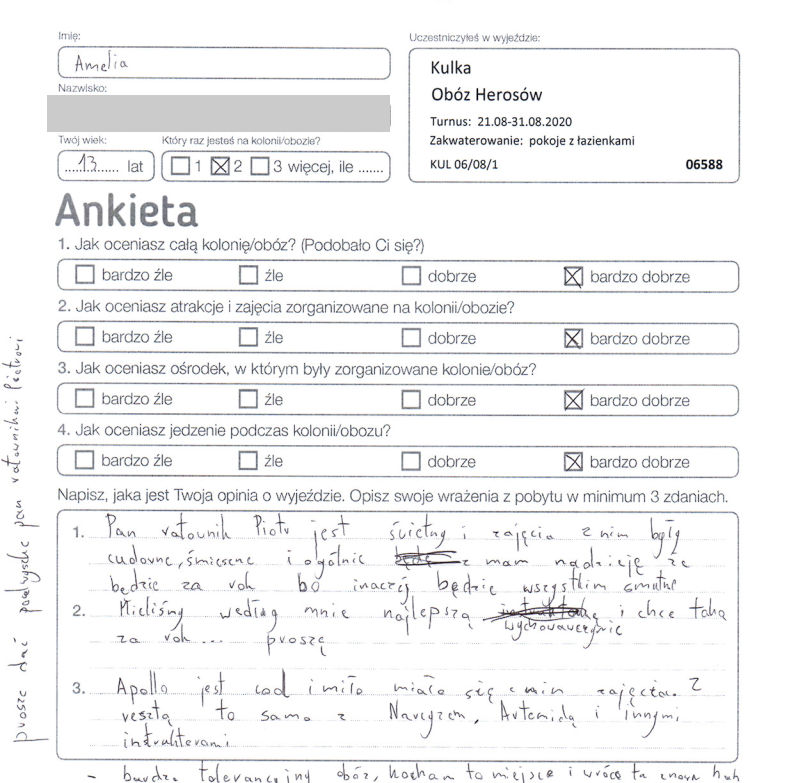 Imię:
Amelia
Nazwisko:
Twój wiek:
Który raz jesteś na kolonii/obozie?
13 lat
1 2 3 więcej, ile .......
Uczestniczyłeś w wyjeździe:
Kulka
Obóz Herosów
Turnus: 21.08-31.08.2020
Zakwaterowanie: pokoje z łazienkami
KUL 06/08/1 06588
Ankieta
1. Jak oceniasz całą kolonię/obóz? (Podobało Ci się?)
bardzo źle źle dobrze bardzo dobrze
2. Jak oceniasz atrakcje i zajęcia zorganizowane na kolonii/obozie?
bardzo źle źle dobrze bardzo dobrze
3. Jak oceniasz ośrodek, w którym były zorganizowane kolonie/obóz?
bardzo źle źle dobrze bardzo dobrze
4. Jak oceniasz jedzenie podczas kolonii/obozu?
bardzo źle źle dobrze bardzo dobrze
Napisz, jaka jest Twoja opinia o wyjeździe. Opisz swoje wrażenia z pobytu w minimum 3 zdaniach.
1. Pan ratownik Piotr jest świetny i zajęcia z nim były
cudowne, śmieszne i ogólnie mam nadzieję że
będzie za rok bo inaczej będzie wszystkim smutno
2. Mieliśmy według mnie najlepszą i chce taką
wychowawczynię
za rok... proszę
3. Apollo jest cod i miło miało się z nim zajęcia. Z
resztą to samo z Narcyzem, Artemidą i innymi
instruktorami
- bardzo tolerancyjny obóz, kocham to miejsce i wrócę tu znowu
proszę dać panu ratownikowi Piotrowi